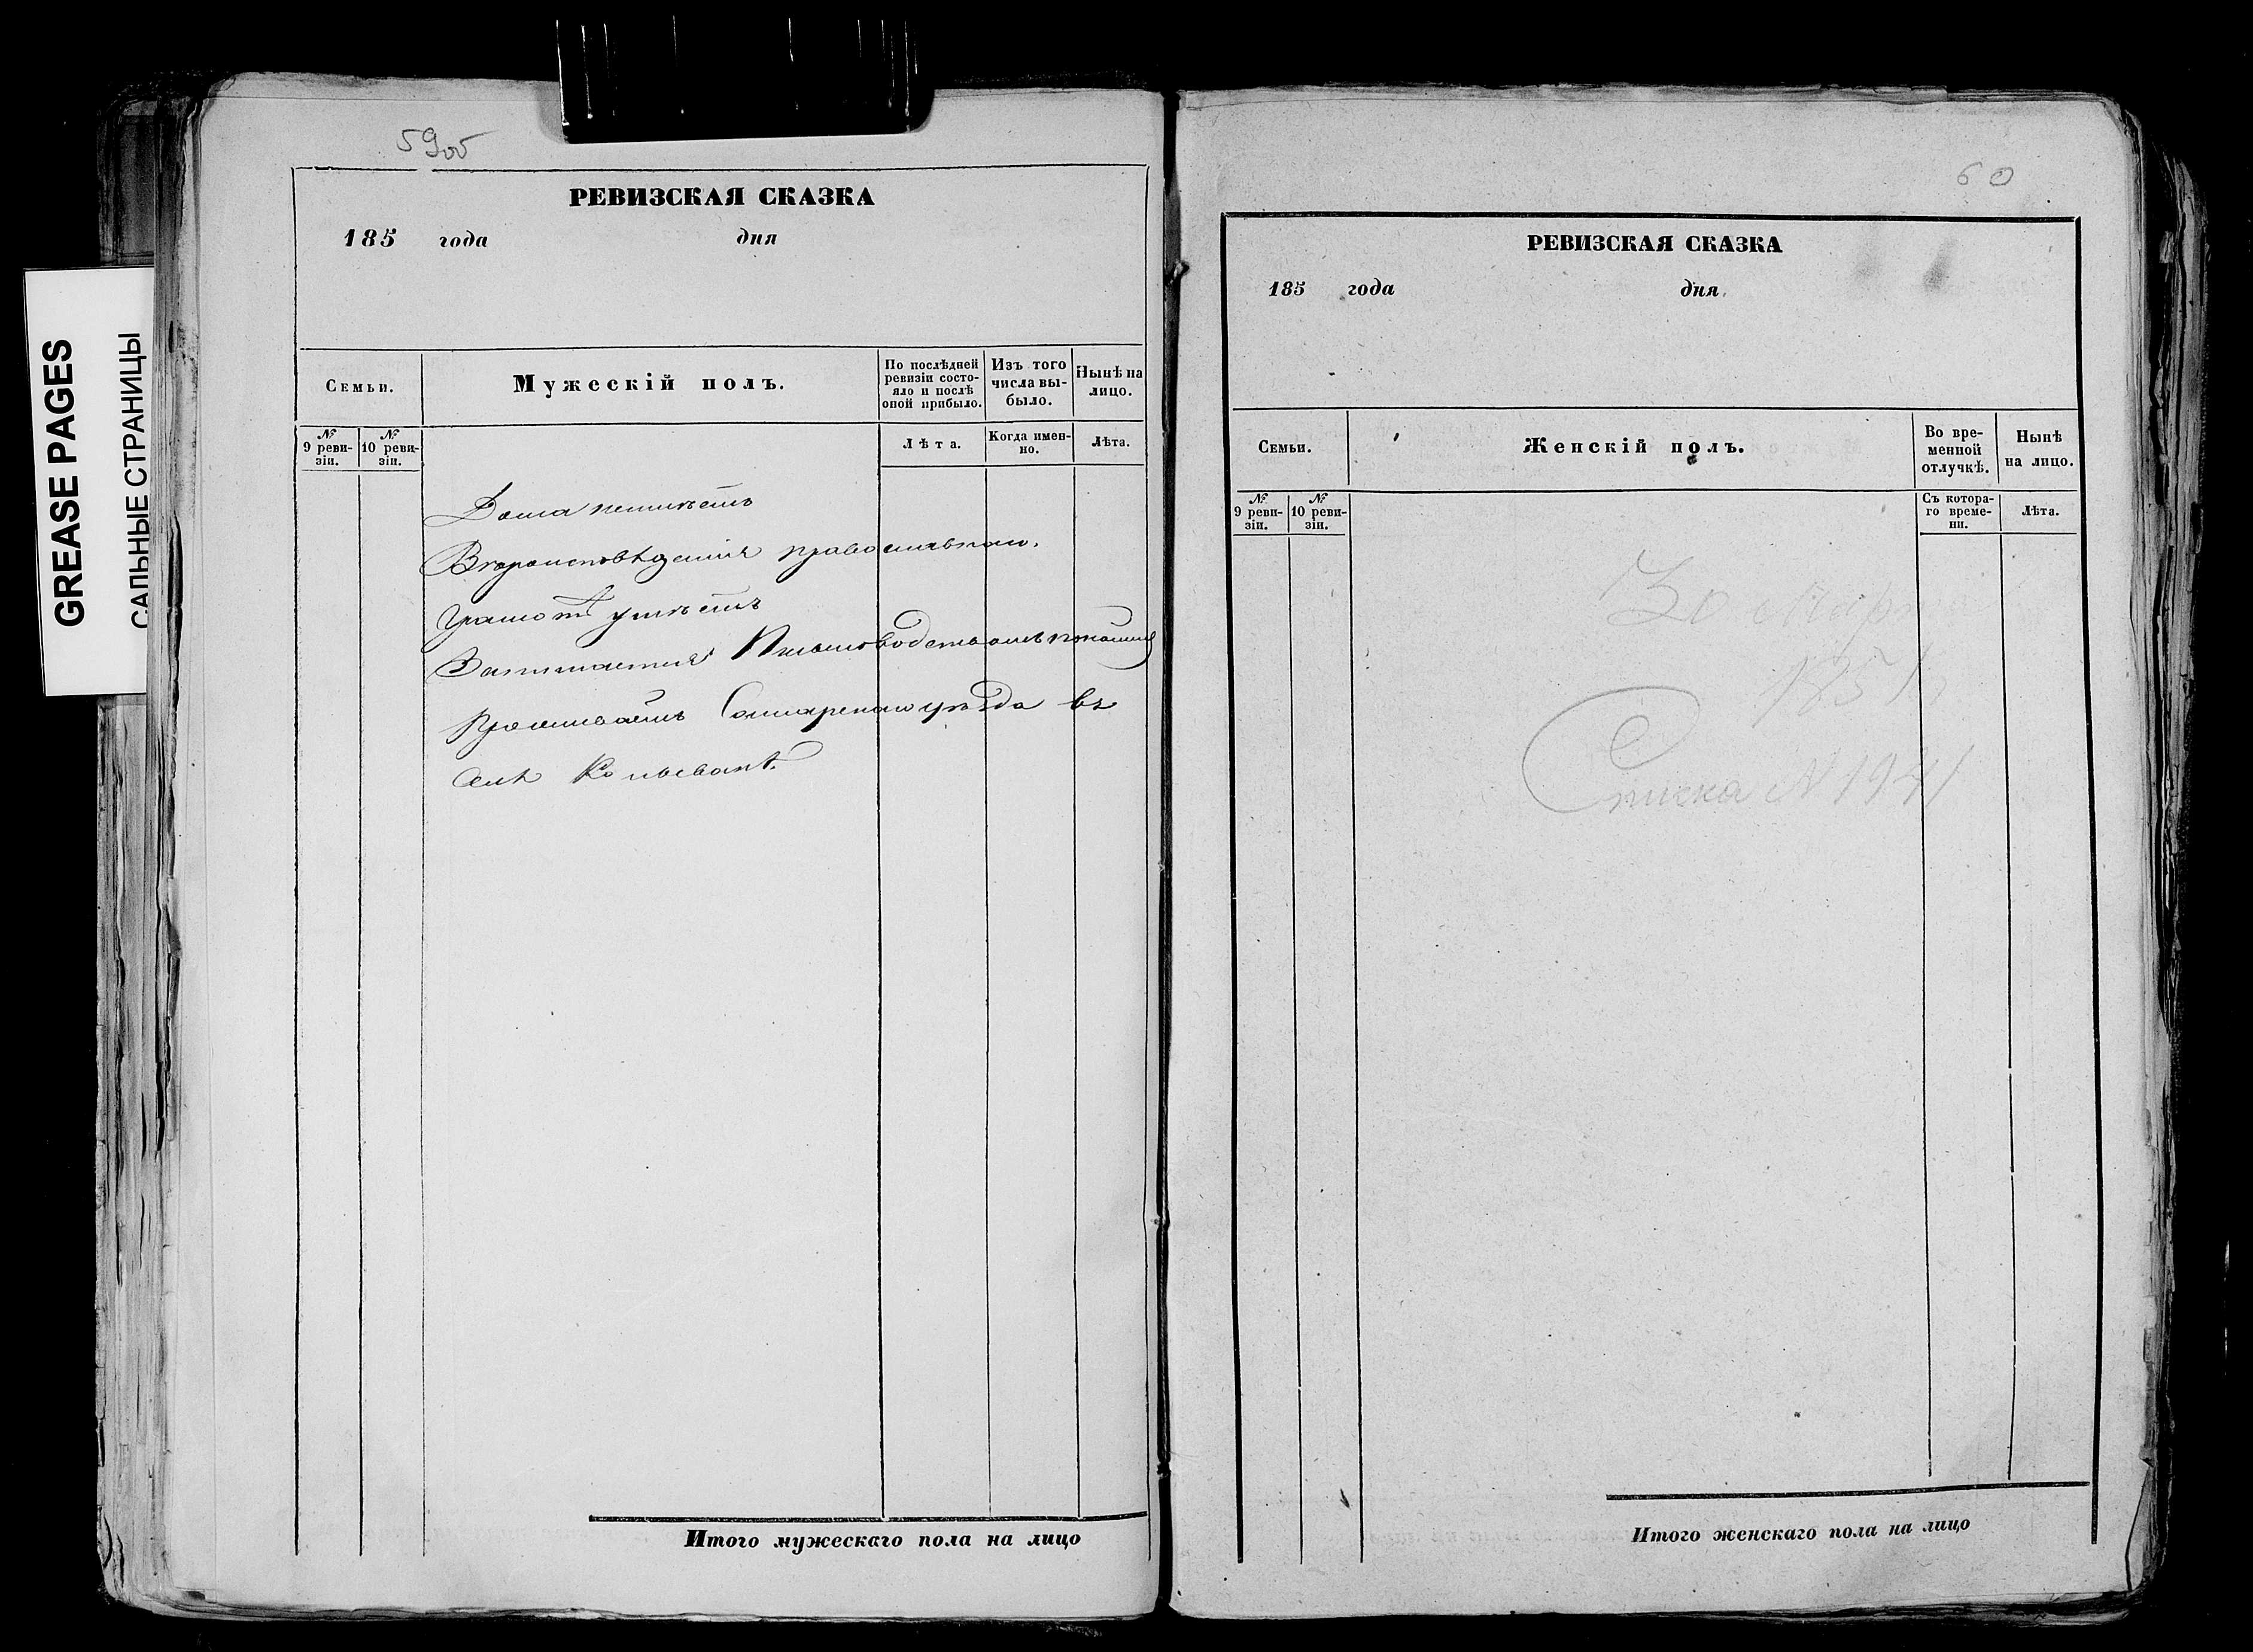 GREASE PAGES
САЛЬНЫЕ СТРАНИЦЫ
59об
РЕВИЗСКАЯ СКАЗКА
185 года дня
Семьи.
Мужескій полъ.
По послѣдней ревизіи состо-
яло и послѣ
оной прибыло.
Изъ того
числа вы-
было.
Нынѣ на
лицо.
№
9 реви-
зіи.
№
10 реви-
зіи.
Лѣта.
Когда имен-
но.
Лѣта.
Дома неимѣетъ
Вѣроисповѣданія православнаго.
Грамотѣ умѣетъ
Занимается Письмоводствомъ
Проживаетъ Самарскаго уѣзда въ
селѣ Колывани.
Итого мужескаго пола на лицо
60
РЕВИЗСКАЯ СКАЗКА
185 года дня
Семьи.
Женскій полъ.
Во вре-
менной
отлучкѣ.
Нынѣ
на лицо.
№
9 реви-
зіи.
№
10 реви-
зіи.
Съ котора-
го време-
ни.
Лѣта.
30 Марта
185
Списка № 1941
Итого женскаго пола на лицо